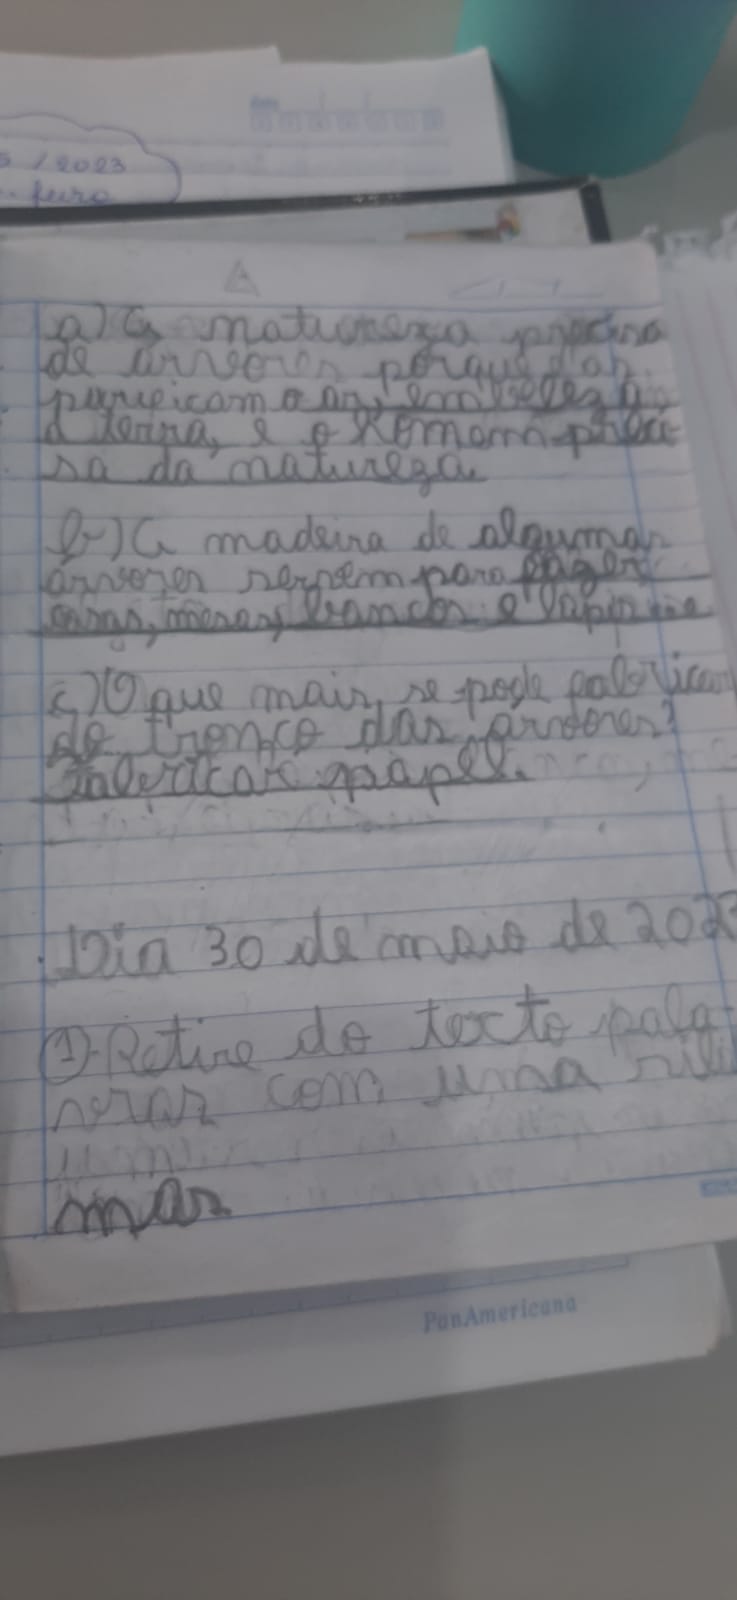 5 / 2023
feira
a) A natureza precisa
de árvores porque elas
purificam o ar, embeleza
a terra, e o homem preci-
sa da natureza.
b) A madeira de algumas
árvores servem para fazer
casas, mesas, bancos e lápis
c) O que mais se pode fabricar
do tronco das arvores?
Fabricar papel.
Dia 30 de maio de 2023
1)- Retire do texto pala-
vras com uma síli
mas
PanAmericana